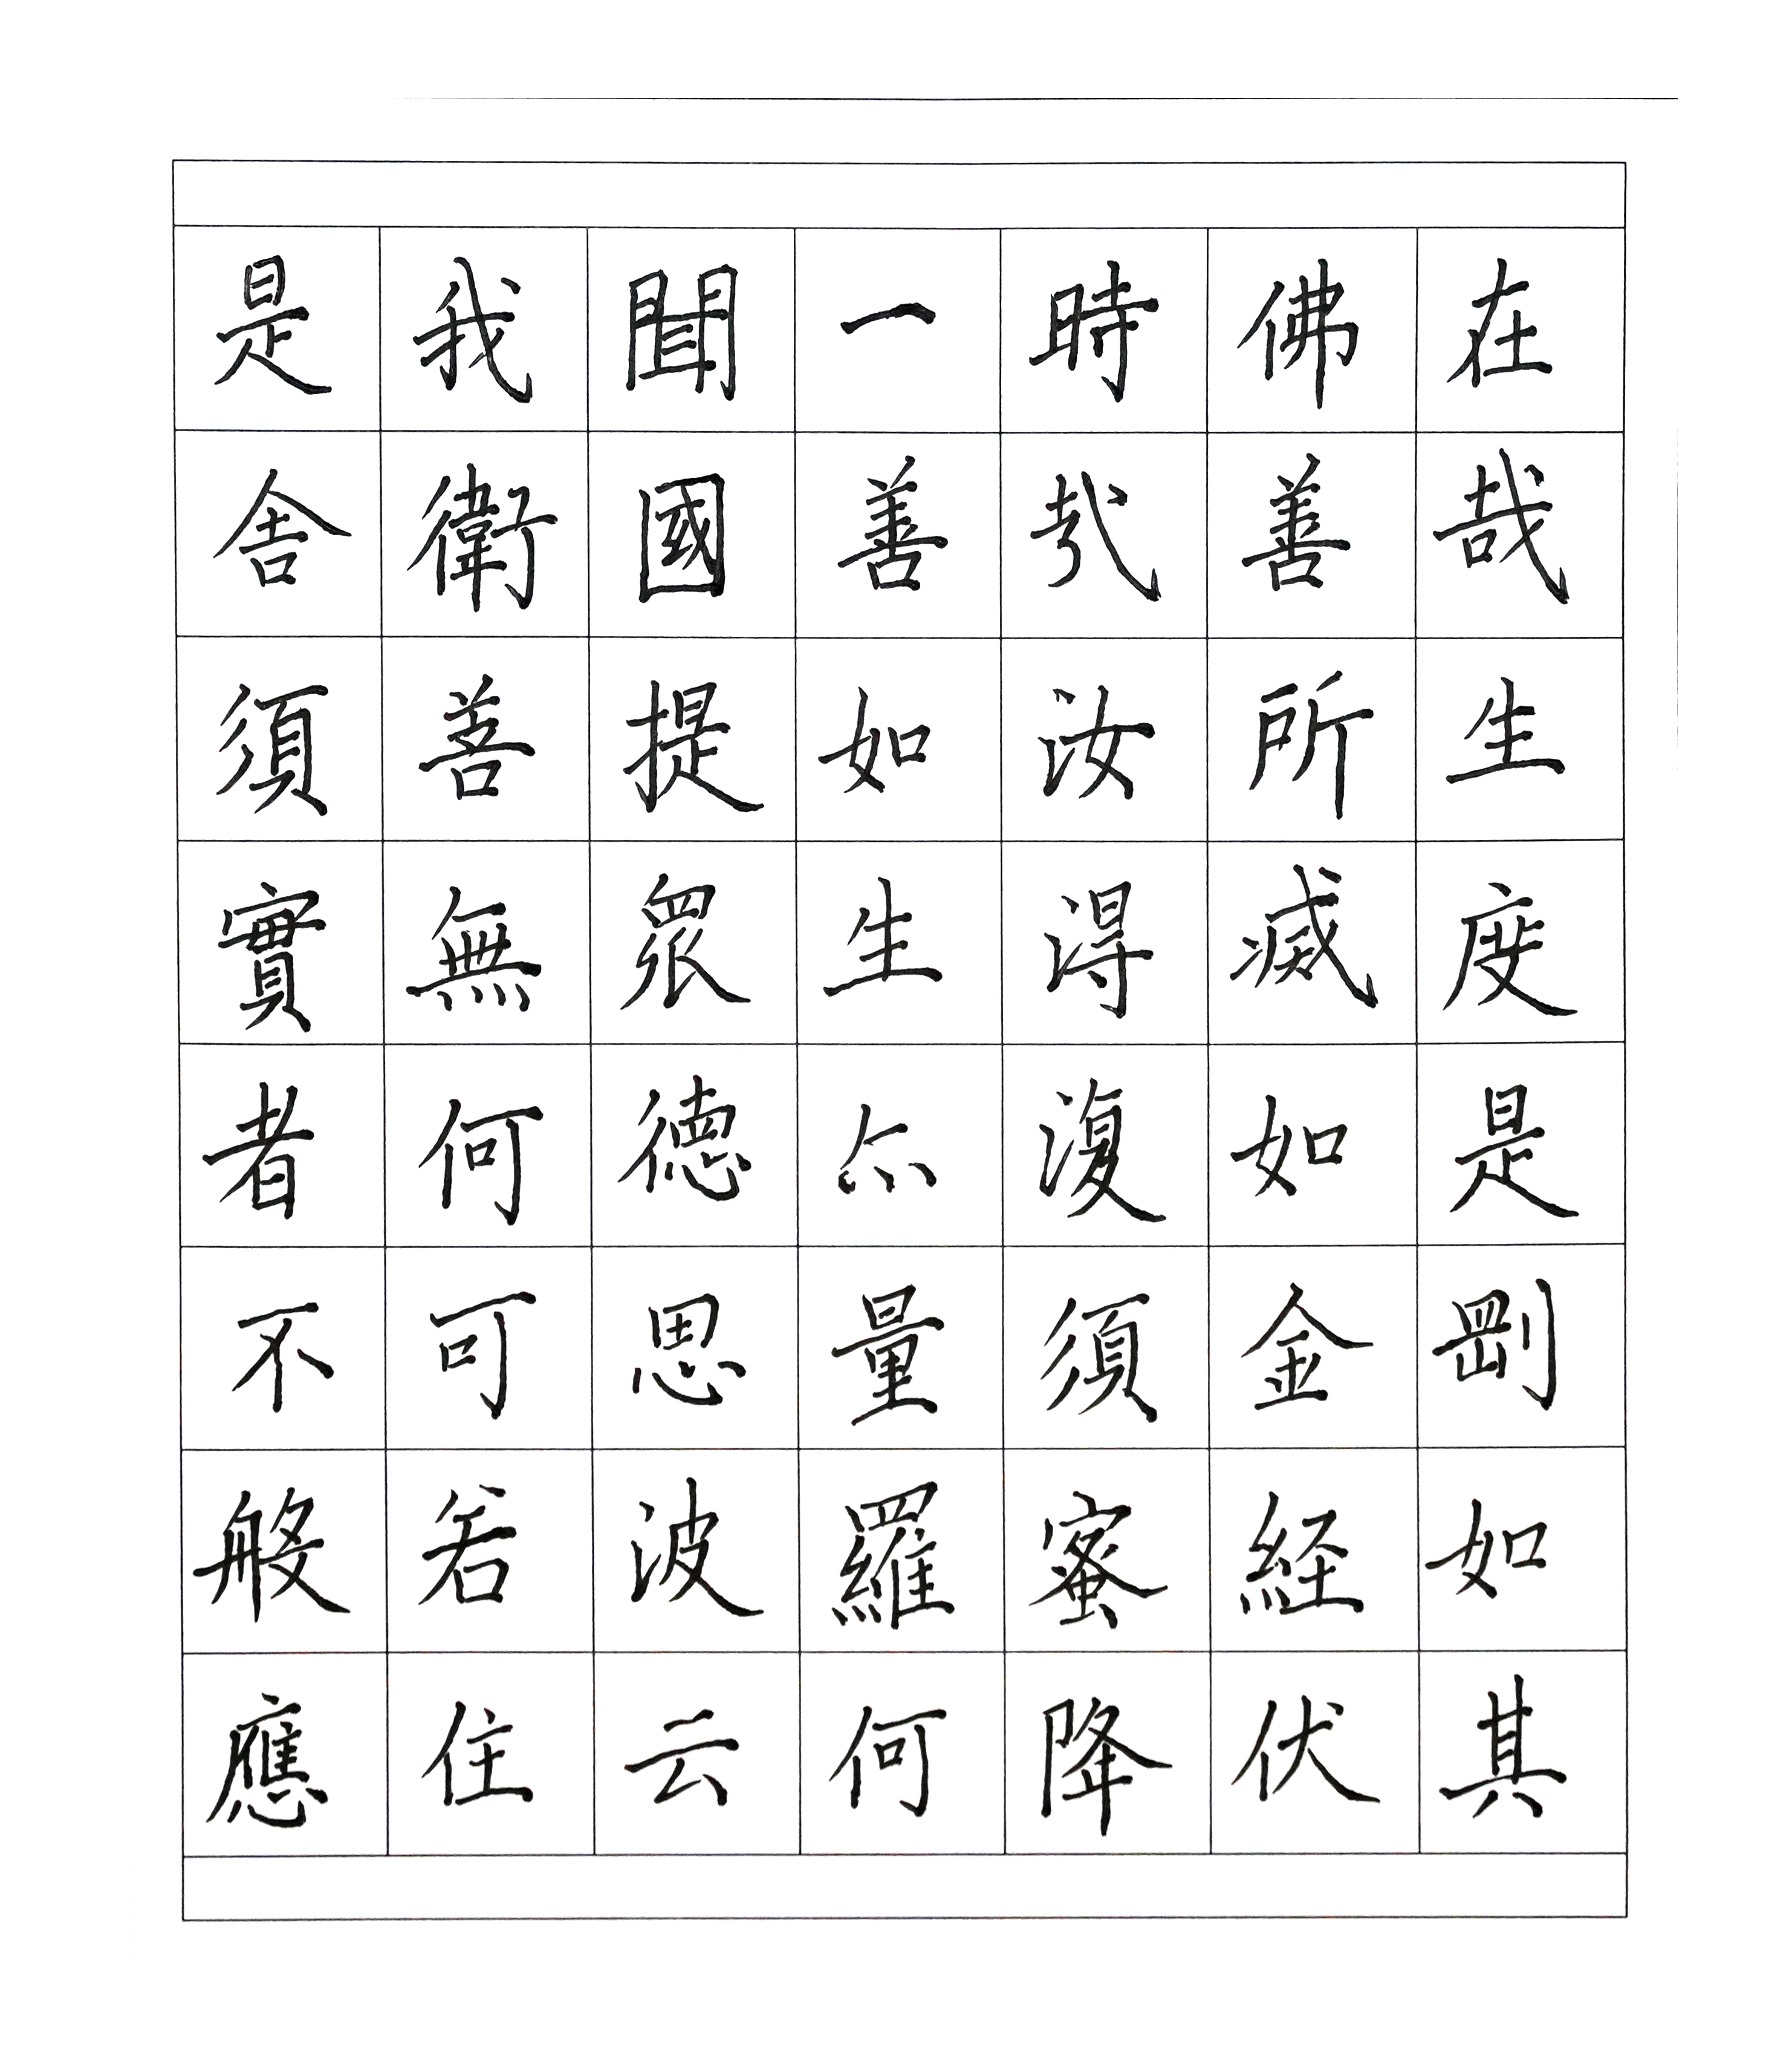 是我聞一時佛在
舍衛國善哉善哉
須菩提如汝所生
實無眾生得滅度
者何德尒復如是
不可思量須金剛
般若波羅蜜経如
應住云何降伏其